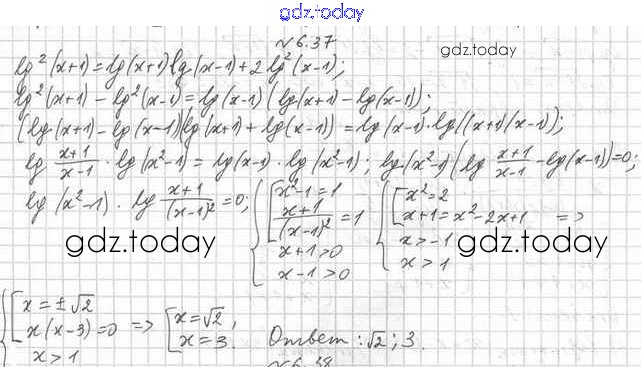 gdz.today
№6.37
gdz.today
lg²(x+1)=lg(x+1)lg(x-1)+2lg²(x-1);
lg²(x+1)-lg²(x-1)=lg(x-1)(lg(x+1)-lg(x-1));
(lg(x+1)-lg(x-1))(lg(x+1)+lg(x-1))=lg(x-1)·lg((x+1)(x-1));
lg (x+1)/(x-1) · lg(x²-1)=lg(x-1)·lg(x²-1); lg(x²-1)(lg (x+1)/(x-1) -lg(x-1))=0;
lg(x²-1)·lg (x+1)/(x-1)²=0; { [ x²-1=1 { [ x²=2
(x+1)/(x-1)²=1 x+1=x²-2x+1 =>
gdz.today gdz.today
x+1>0 x>-1
x-1>0 x>1
{ [ x=±√2
x(x-3)=0 => [ x=√2, x=3. Ответ: √2; 3.
x>1
№6.38